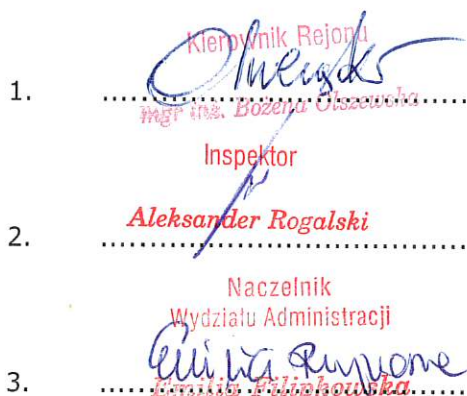 Kierownik Rejonu
1. ........................................
mgr inż. Bożena Olszewska
Inspektor
Aleksander Rogalski
2. ........................................
Naczelnik
Wydziału Administracji
3. ........................................
Emilia Filipkowska